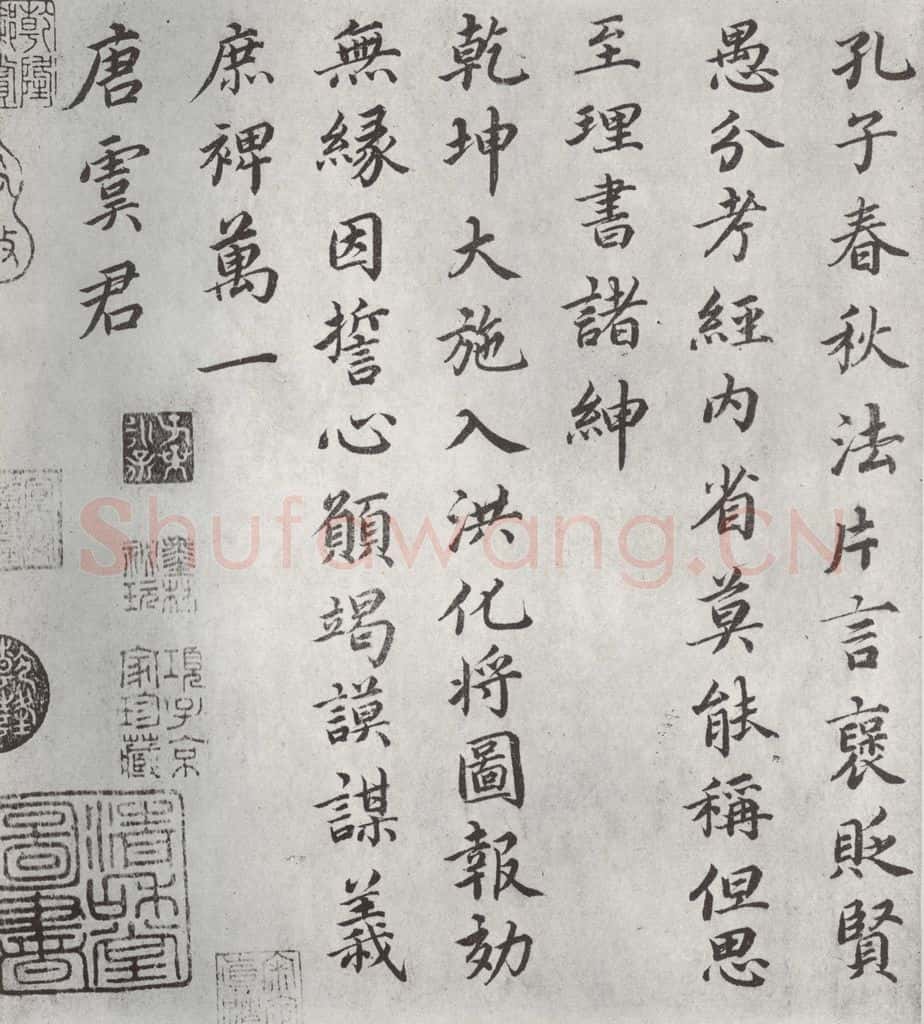 孔子春秋法片言褒貶賢
愚分考經内省莫能稱但思
至理書諸紳
乾坤大施入洪化将圖報効
無縁因誓心願竭謨謀義
庶裨萬一
唐虞君
墨林秘玩
項子京家珍藏
Shufawang.CN